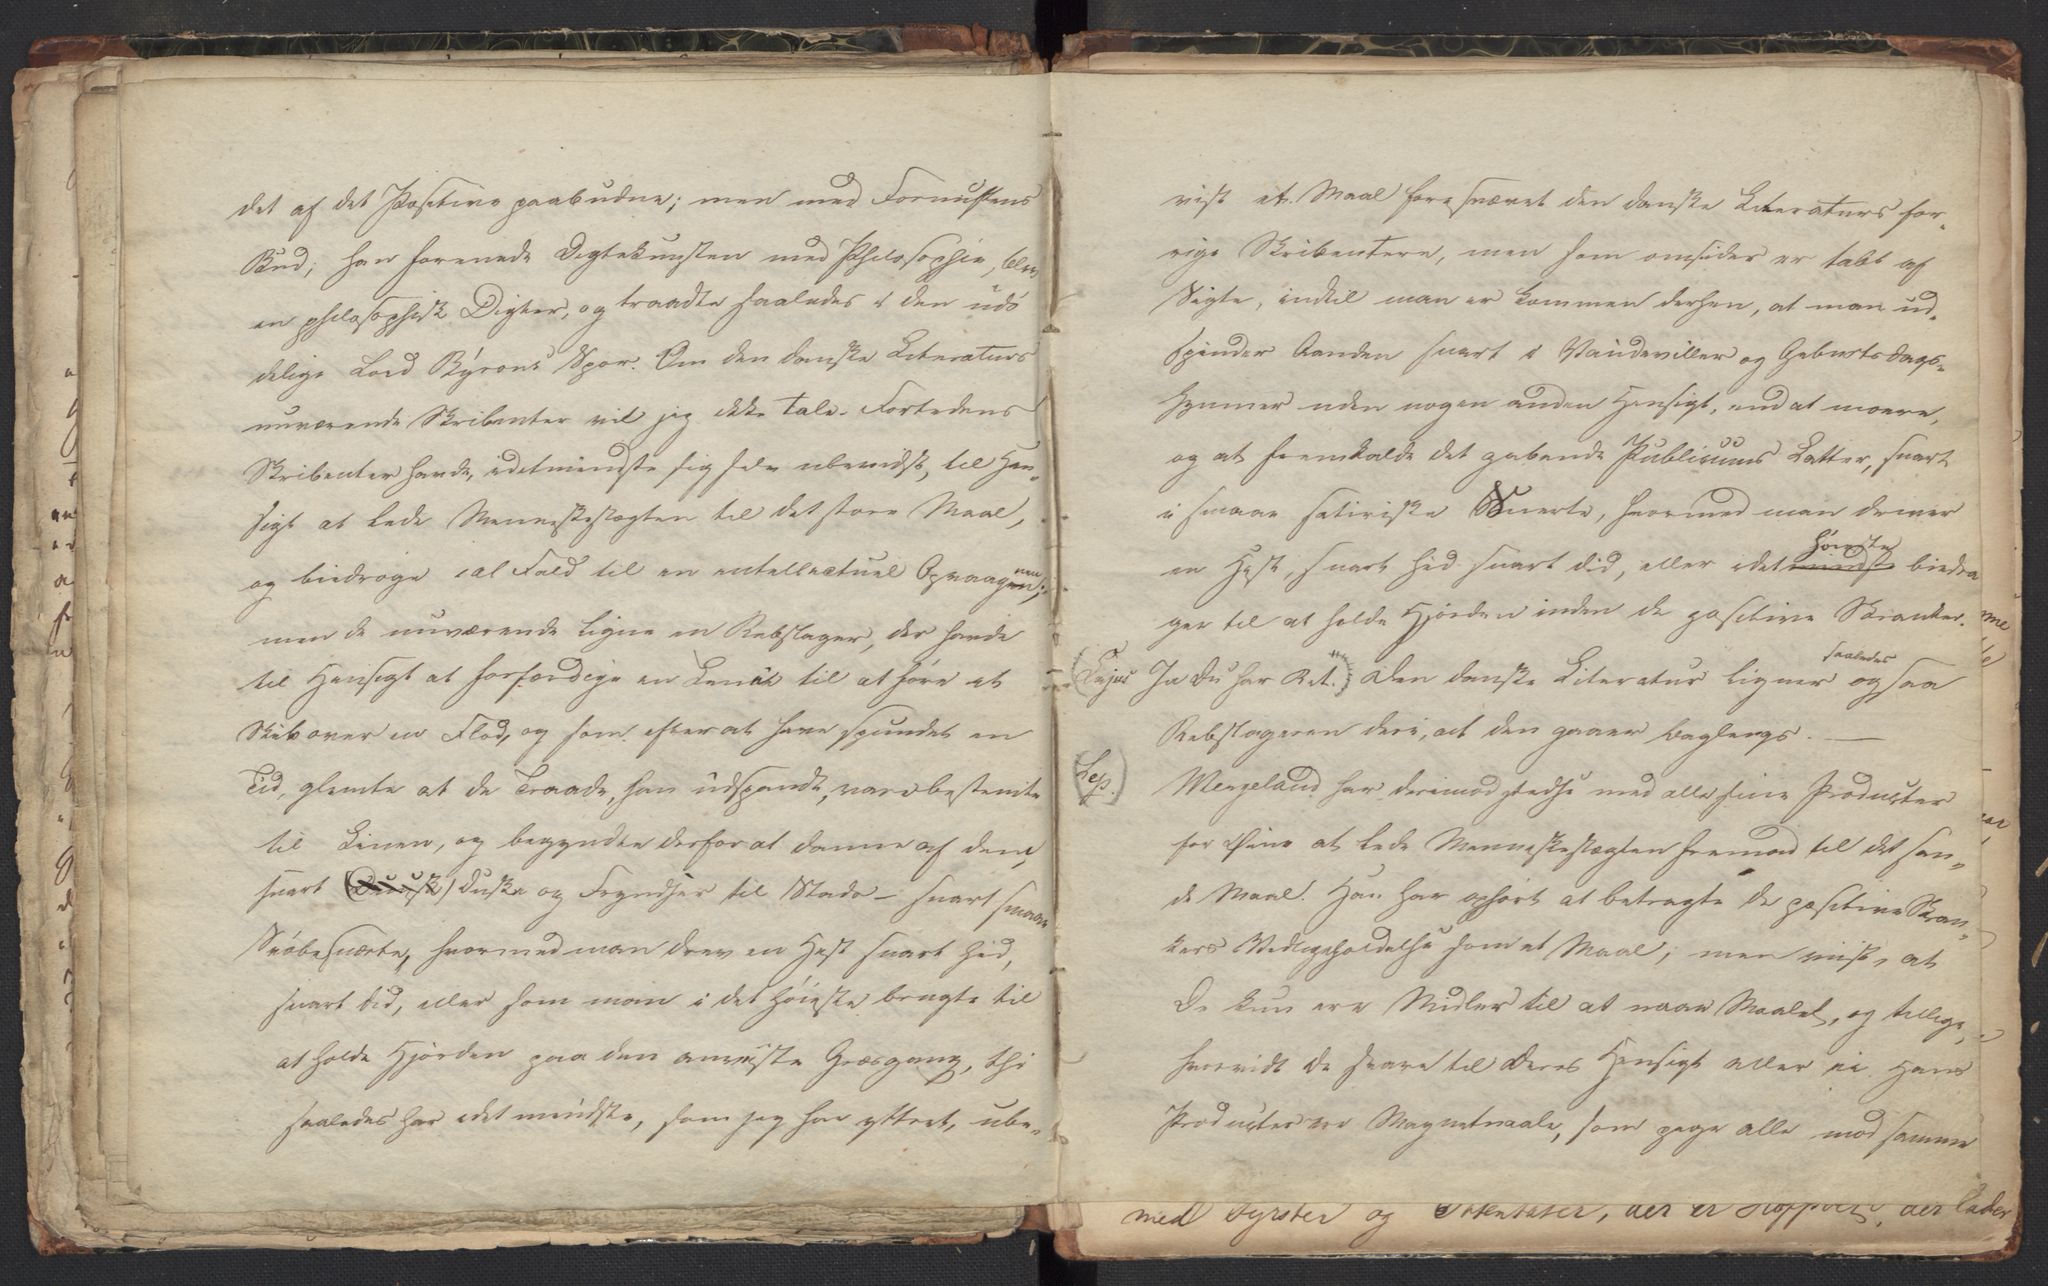 det af det Positive paabudne; men med Fornuftens
Bud; han forenede Digtekunsten med Philosophie, blev
en philosophisk Digter, og traadte saaledes i den udö
delige Lord Byrons Spor. Om den danske Literaturs
nuværende Skribenter vil jeg ikke tale. Fortidens
Skribenter havde, idetmindste sig selv ubevidst, til Hen-
sigt at lede Menneskeslægten til det store Maal,
og bidroge ial Fald til en intellectuel Opvaagnen;
men de nuværende ligne en Rebslager, der havde
til Hensigt at forfærdige en Line til at före et
Skib over en Flod, og som efterat have spundet en
Tid, glemte at de Traade, han udspandt, vare bestemte
til Linen, og begyndte derfor at danne af dem,
snart Duske og Fryndser til Stads – snart smaae
Svöbesnærte, hvormed man drev en Hest snart hid,
snart did, eller som man i det höieste brugte til
at holde Hjorden paa den anviiste Græsgang, thi
saaledes har idetmindste, som jeg har yttret, ube-
vist et Maal foresvævet den danske Literaturs for-
rige Skribentere, men som omsider er tabt af
Sigte, indtil man er kommen derhen, at man ud-
spinder Aanden snart i Vaudeviller og Geburtsdags-
hymner uden nogen anden Hensigt, end at moere,
og at fremkalde det gabende Publicums Latter, snart
i smaae satiriske Snerte, hvormed man driver
en Hest, snart hid snart did, eller idet höieste bidra
ger til at holde Hjorden inden de positive Skranker.
(Cajus Ja du har Ret.) Den danske Literatur ligner saaledes ogsaa
Rebslageren deri, at den gaaer baglengs. —
(Lep.) Wergeland har derimod stedse med alle sine Producter
for Öine at lede Menneskeslægten fremad til det san-
de Maal. Han har ophört at betragte de positive Skran-
kers Vedligeholdelse som et Maal; men viist, at
de kun ere Midler til at naae Maalet, og tillige,
hvorvidt de svare til deres Hensigt eller ei. Hans
Producter ere Magnetnaale, som pege alle mod samme
med Fyrster og Potentater, der er Kopper, der lader